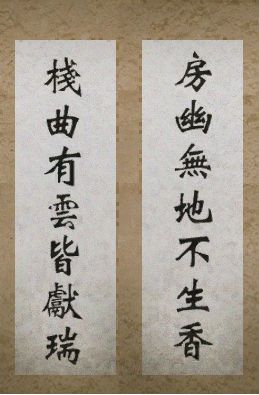 房幽無地不生香
棧曲有雲皆獻瑞